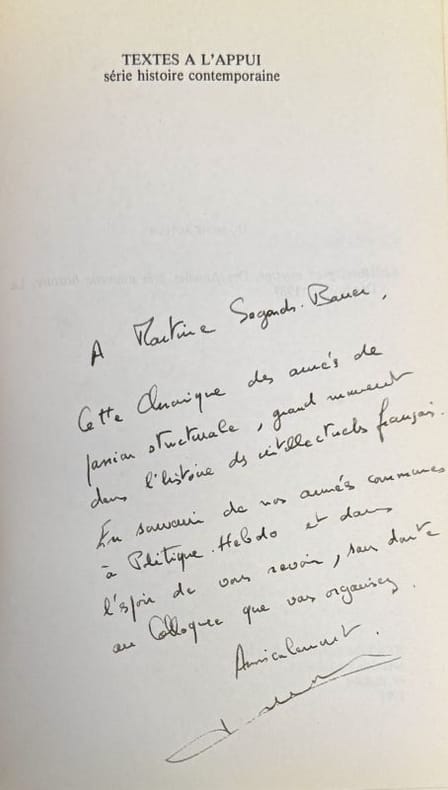 TEXTES A L'APPUI
série histoire contemporaine
A Martine
Cette Chronique des années de
passion structurale, grand moment
dans l'histoire des intellectuels français.
En souvenir de nos années communes
à Politique-Hebdo et dans
l'espoir de vous revoir, sans doute
au Colloque que vous organisez.
Amicalement.